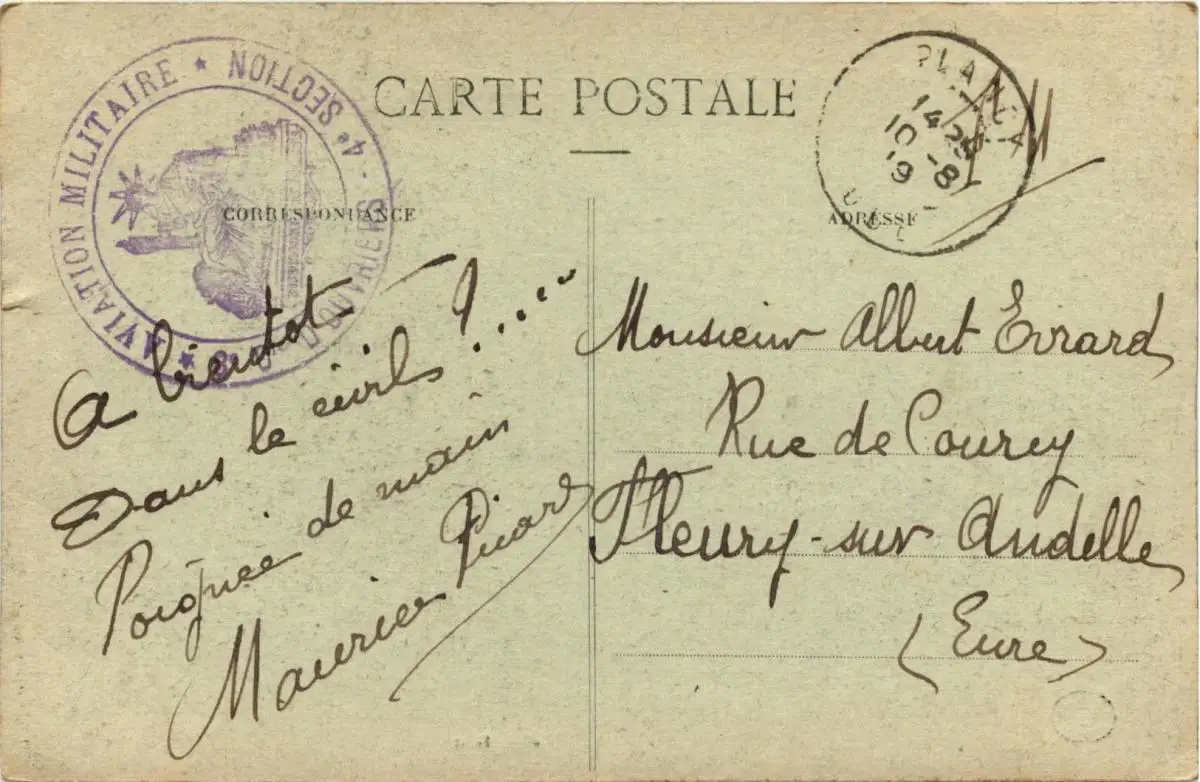 CARTE POSTALE
AVIATION MILITAIRE ★ 4e SECTION
OUVRIERS
14 25
10 -8
19
CORRESPONDANCE
ADRESSE
A bientot
Dans le civils ?....
Poignée de main
Maurice Picard
Monsieur Albert Evrard
Rue de Courcy
Fleury-sur Andelle
(Eure)